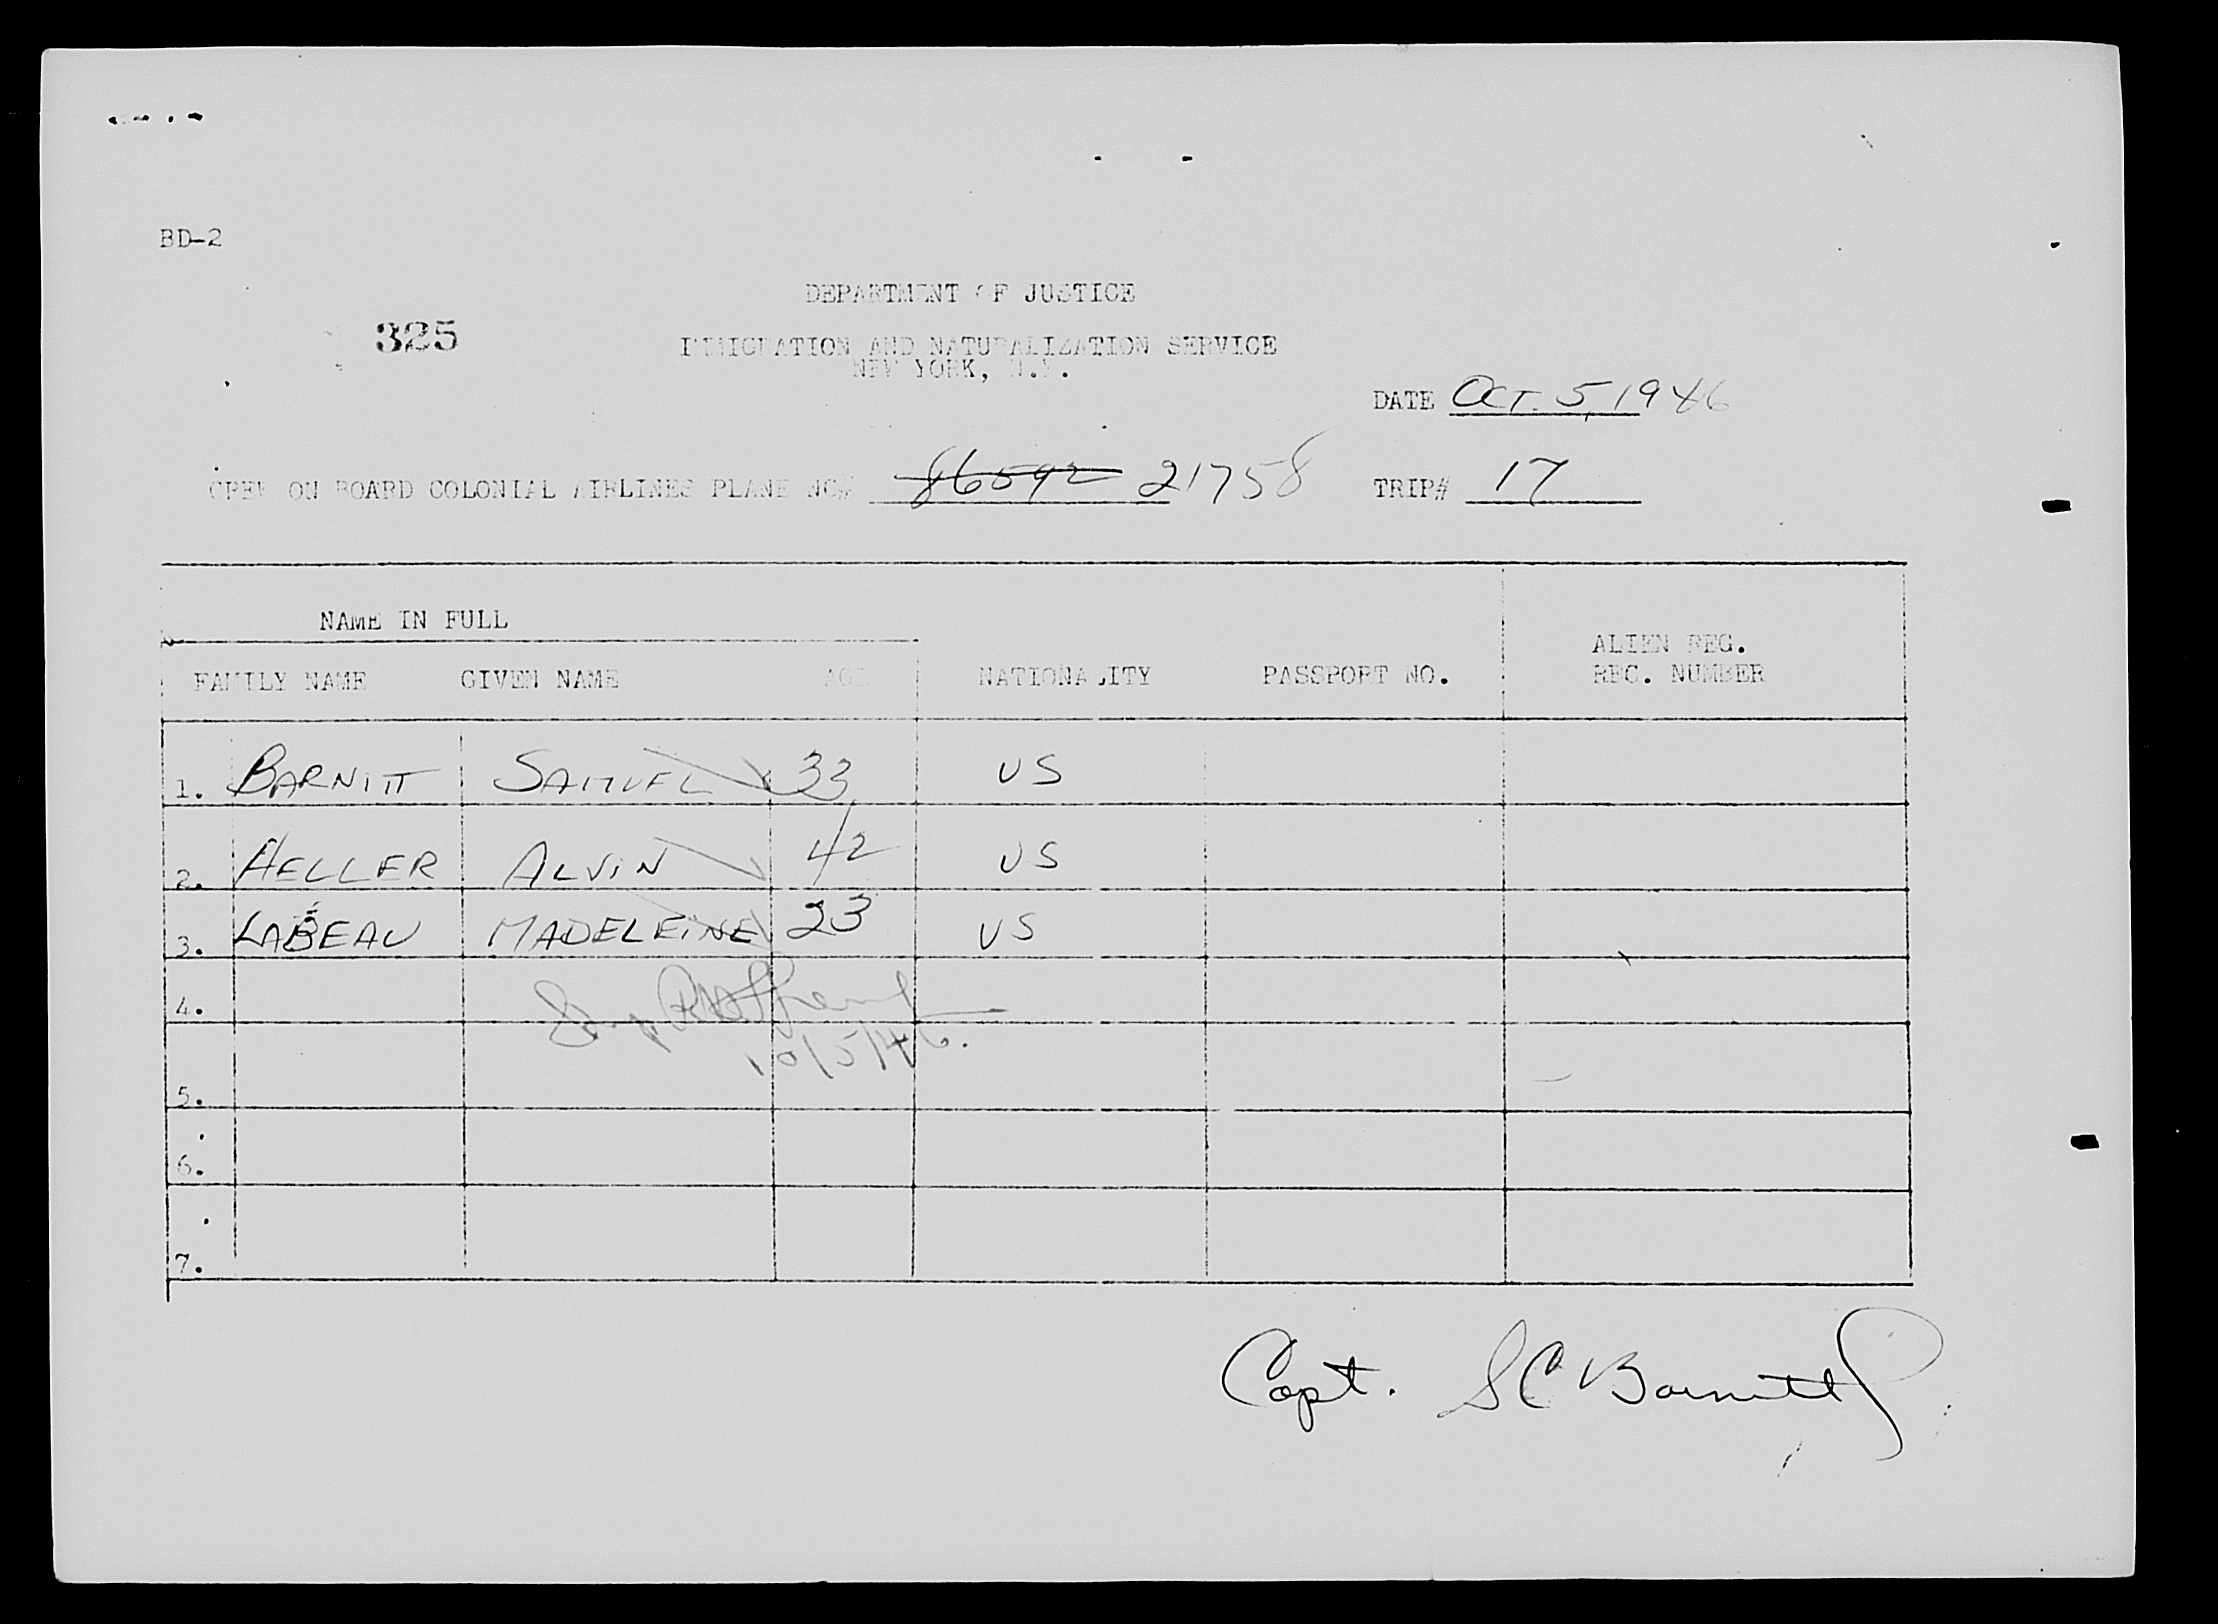 BD-2
DEPARTMENT OF JUSTICE
325
IMMIGRATION AND NATURALIZATION SERVICE
NEW YORK, N.Y.
DATE OCT. 5, 1946
CREW ON BOARD COLONIAL AIRLINES PLANE NC# 86592 21758 TRIP# 17
NAME IN FULL
ALIEN REG.
FAMILY NAME GIVEN NAME AGE NATIONALITY PASSPORT NO. REC. NUMBER
1. BARNITT SAMUEL 33 US
2. HELLER ALVIN 42 US
3. LABEAU MADELEINE 23 US
4.
10/5/46.
5.
6.
7.
Capt. S C Barnitt